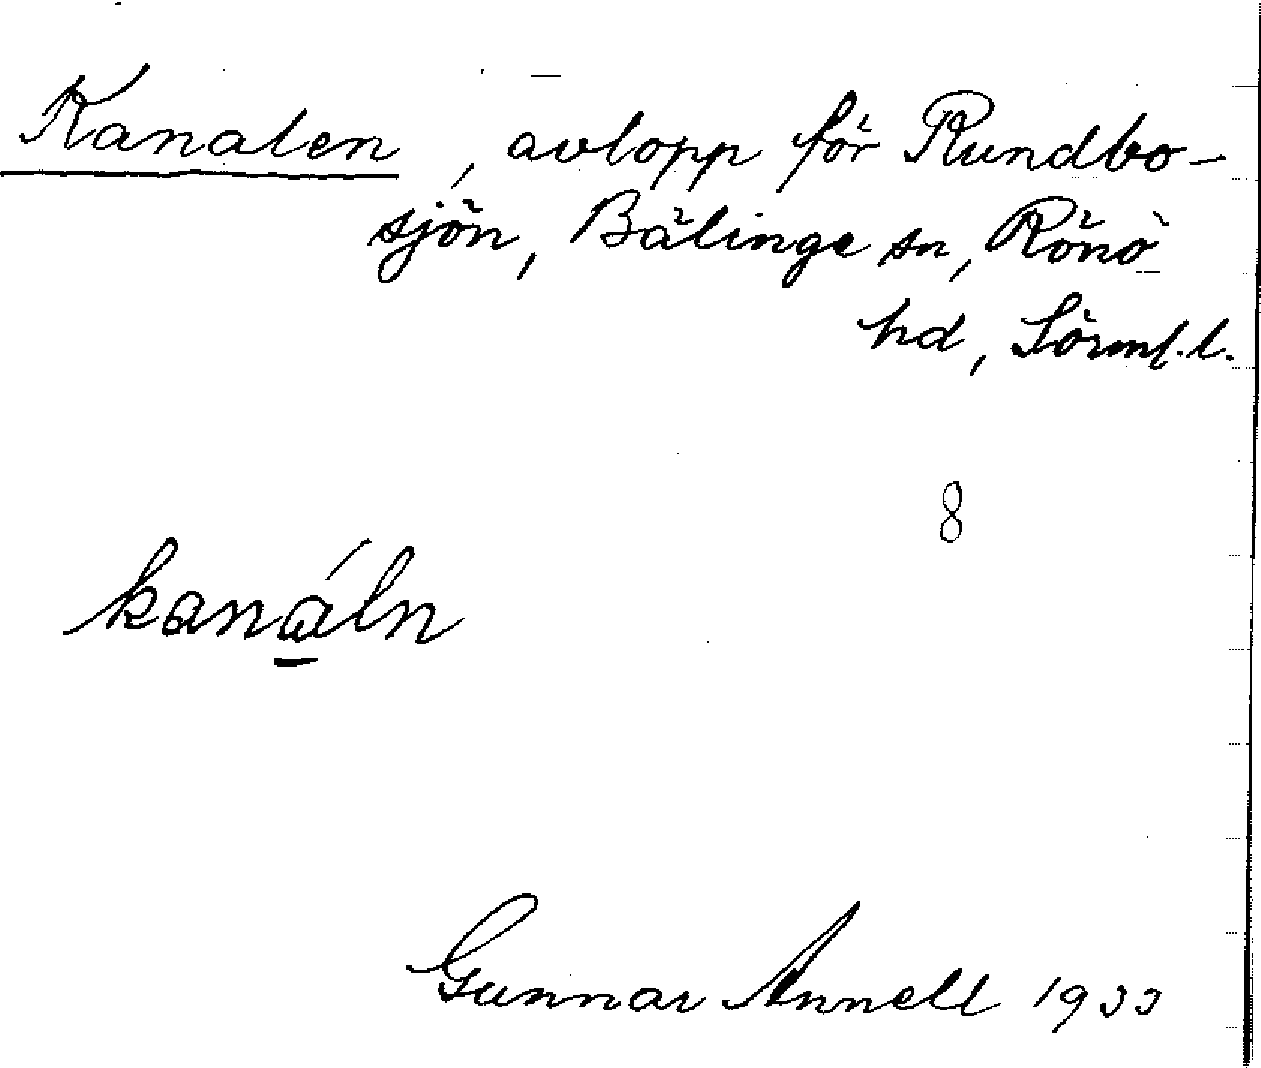 Kanalen, avlopp för Rundbo-
sjön, Bälinge sn, Rönö
hd, Sörml. l.
8
kanáln
Gunnar Annell 1933